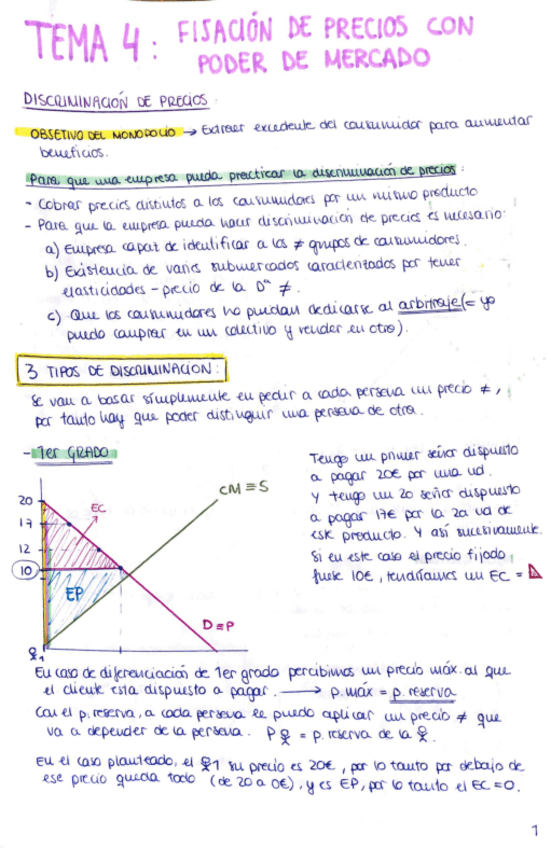 TEMA 4: FIJACIÓN DE PRECIOS CON
PODER DE MERCADO
DISCRIMINACIÓN DE PRECIOS.
OBJETIVO DEL MONOPOLIO → Extraer excedente del consumidor para aumentar
beneficios.
Para que una empresa pueda practicar la discriminación de precios:
- Cobrar precios distintos a los consumidores por un mismo producto
- Para que la empresa pueda hacer discriminación de precios es necesario:
a) Empresa capaz de identificar a los ≠ grupos de consumidores.
b) Existencia de varios submercados caracterizados por tener
elasticidades - precio de la Dª ≠.
c) Que los consumidores no puedan dedicarse al arbitraje (= yo
puedo comprar en un colectivo y vender en otro).
3 TIPOS DE DISCRIMINACION:
Se van a basar simplemente en pedir a cada persona un precio ≠,
por tanto hay que poder distinguir una persona de otra.
- 1er GRADO
20
17
12
10
EC
EP
CM ≡ S
D ≡ P
1
Tengo un primer señor dispuesto
a pagar 20€ por una ud.
Y tengo un 2o señor dispuesto
a pagar 17€ por la 2a ud de
este producto. Y así sucesivamente.
Si en este caso el precio fijado
fuese 10€, tendríamos un EC =
En caso de diferenciación de 1er grado percibimos un precio máx. al que
el cliente esta dispuesto a pagar. → p. máx = p. reserva
Con el p. reserva, a cada persona le puedo aplicar un precio ≠ que
va a depender de la persona. P = p. reserva de la
En el caso planteado, el 1 su precio es 20€, por lo tanto por debajo de
ese precio queda todo (de 20 a 0€), y es EP, por lo tanto el EC = 0.
1